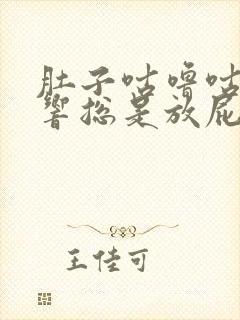 肚子咕噜咕
响总是放屁
王佳可